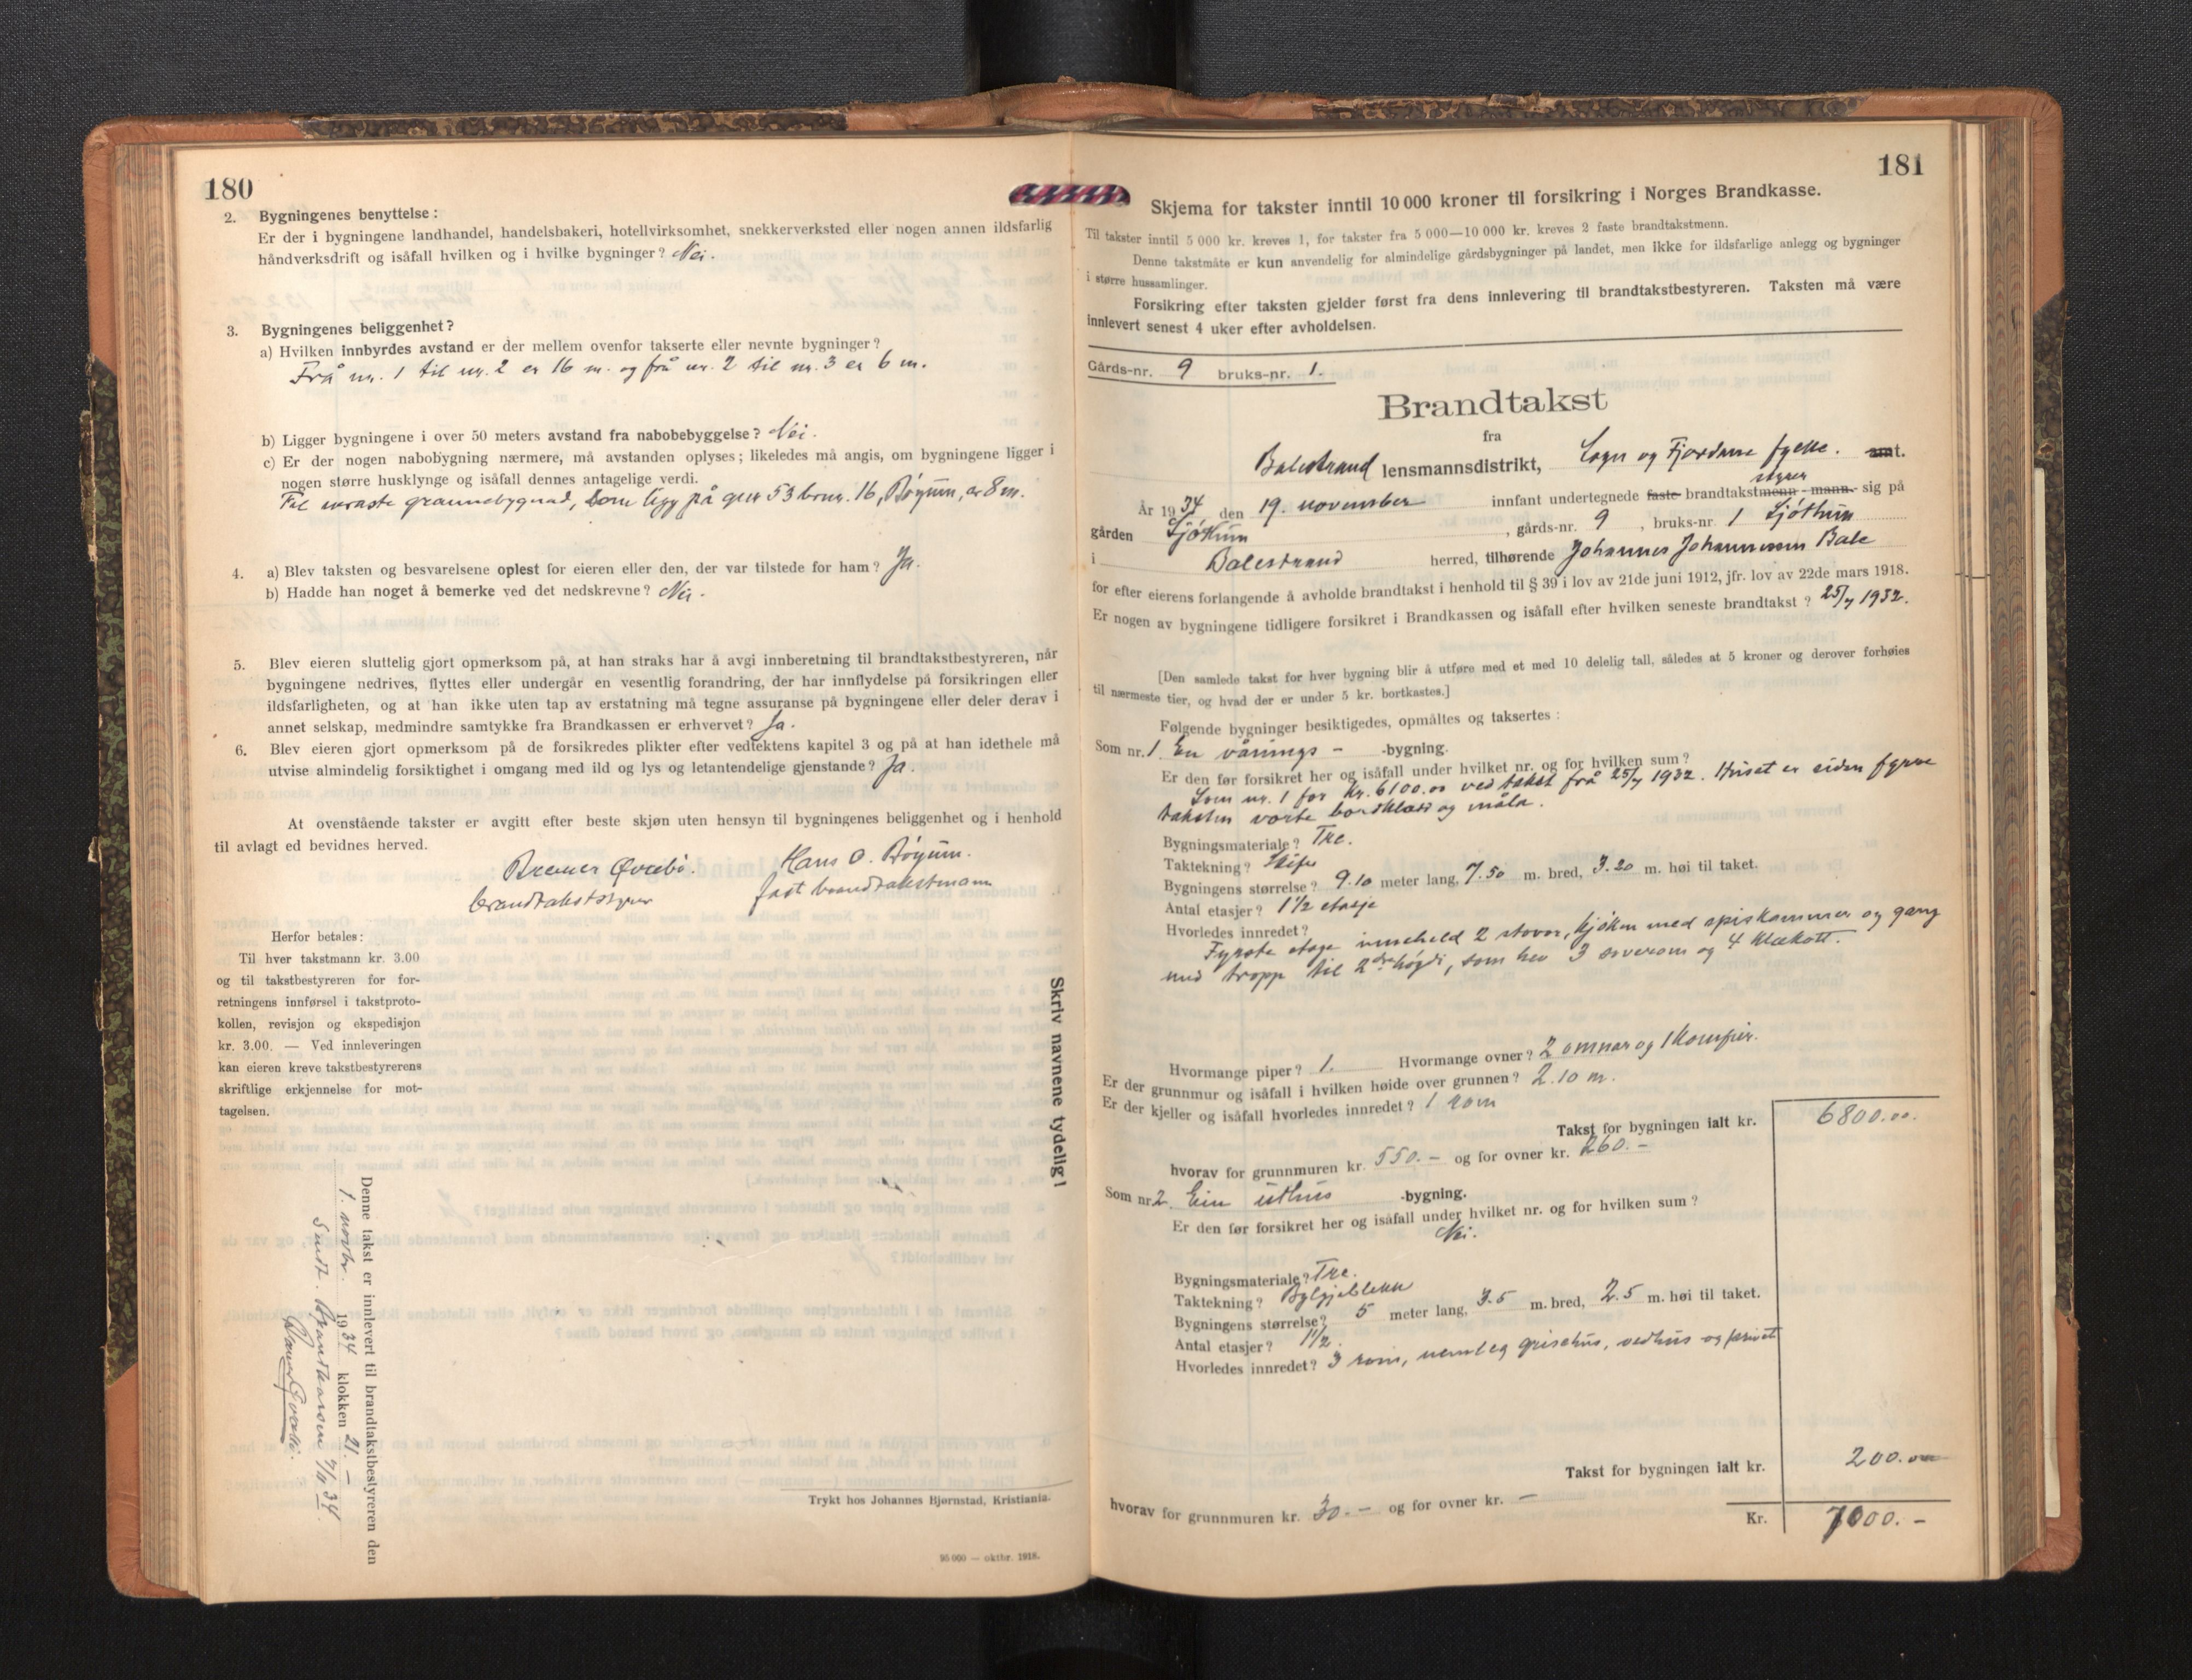 180
2. Bygningenes benyttelse:
Er der i bygningene landhandel, handelsbakeri, hotellvirksomhet, snekkerverksted eller nogen annen ildsfarlig
håndverksdrift og isåfall hvilken og i hvilke bygninger? Nei.
3. Bygningenes beliggenhet?
a) Hvilken innbyrdes avstand er der mellem ovenfor takserte eller nevnte bygninger?
Frå nr. 1 til nr. 2 er 16 m. og frå nr. 2 til nr. 3 er 6 m.
b) Ligger bygningene i over 50 meters avstand fra nabobebyggelse? Nei.
c) Er der nogen nabobygning nærmere, må avstanden oplyses; likeledes må angis, om bygningene ligger i
nogen større husklynge og isåfall dennes antagelige verdi.
Til næraste grannebygnad, som ligg på gnr 53 brnr. 16, Bøyum, er 8 m.
4. a) Blev taksten og besvarelsene oplest for eieren eller den, der var tilstede for ham? Ja.
b) Hadde han noget å bemerke ved det nedskrevne? Nei.
5. Blev eieren sluttelig gjort opmerksom på, at han straks har å avgi innberetning til brandtakstbestyreren, når
bygningene nedrives, flyttes eller undergår en vesentlig forandring, der har innflydelse på forsikringen eller
ildsfarligheten, og at han ikke uten tap av erstatning må tegne assuranse på bygningene eller deler derav i
annet selskap, medmindre samtykke fra Brandkassen er erhvervet? Ja.
6. Blev eieren gjort opmerksom på de forsikredes plikter efter vedtektens kapitel 3 og på at han idethele må
utvise almindelig forsiktighet i omgang med ild og lys og letantendelige gjenstande? Ja.
At ovenstående takster er avgitt efter beste skjøn uten hensyn til bygningenes beliggenhet og i henhold
til avlagt ed bevidnes herved.
Øvrebø. Hans O. Bøyum.
brandtakststyrar fast brandtakstmann
Herfor betales:
Til hver takstmann kr. 3.00
og til takstbestyreren for for-
retningens innførsel i takstproto-
kollen, revisjon og ekspedisjon
kr. 3.00. — Ved innleveringen
kan eieren kreve takstbestyrerens
skriftlige erkjennelse for mot-
tagelsen.
Skriv navnene tydelig!
Denne takst er innlevert til brandtakstbestyreren den
1. novbr. 1934 klokken 21.—
Sendt Brandkassen 7/11 34.
Trykt hos Johannes Bjørnstad, Kristiania.
95 000 — oktbr. 1918.
181
Skjema for takster inntil 10 000 kroner til forsikring i Norges Brandkasse.
Til takster inntil 5 000 kr. kreves 1, for takster fra 5 000—10 000 kr. kreves 2 faste brandtakstmenn.
Denne takstmåte er kun anvendelig for almindelige gårdsbygninger på landet, men ikke for ildsfarlige anlegg og bygninger
i større hussamlinger.
Forsikring efter taksten gjelder først fra dens innlevering til brandtakstbestyreren. Taksten må være
innlevert senest 4 uker efter avholdelsen.
Gårds-nr. 9 bruks-nr. 1.
Brandtakst
fra
Balestrand lensmannsdistrikt, Sogn og Fjordane fylke. amt.
styrer
År 1934 den 19. november innfant undertegnede faste brandtakstmenn -mann- sig på
gården Sjøtun, gårds-nr. 9, bruks-nr. 1 Sjøtun
i Balestrand herred, tilhørende Johannes Johannesen Bale
for efter eierens forlangende å avholde brandtakst i henhold til § 39 i lov av 21de juni 1912, jfr. lov av 22de mars 1918.
Er nogen av bygningene tidligere forsikret i Brandkassen og isåfall efter hvilken seneste brandtakst? 25/7 1932.
[Den samlede takst for hver bygning blir å utføre med et med 10 delelig tall, således at 5 kroner og derover forhøies
til nærmeste tier, og hvad der er under 5 kr. bortkastes.]
Følgende bygninger besiktigedes, opmåltes og taksertes:
Som nr. 1. En vånings- -bygning.
Er den før forsikret her og isåfall under hvilket nr. og for hvilken sum?
Som nr. 1 for Kr. 6100.00 ved takst frå 25/7 1932. Huset er siden fyrre
taksten vorte bordklædt og måla.
Bygningsmateriale? Tre.
Taktekning? Skifer
Bygningens størrelse? 9.10 meter lang, 7.50 m. bred, 3.20 m. høi til taket.
Antal etasjer? 1½ etasje
Hvorledes innredet?
Fyrste etage inneheld 2 stover, kjøken med spiskammer og gang
med tropp til 2dre høgdi, som hev 3 soverom og 4 klækott.
Hvormange piper? 1. Hvormange ovner? 2 omnar og 1 komfyr.
Er der grunnmur og isåfall i hvilken høide over grunnen? 2.10 m.
Er der kjeller og isåfall hvorledes innredet? 1 rom
Takst for bygningen ialt kr. 6800.00.
hvorav for grunnmuren kr. 550.— og for ovner kr. 260.—
Som nr. 2. Ein uthus -bygning.
Er den før forsikret her og isåfall under hvilket nr. og for hvilken sum?
Nei.
Bygningsmateriale? Tre.
Taktekning? Bylgjeblekk
Bygningens størrelse? 5 meter lang, 3.5 m. bred, 2.5 m. høi til taket.
Antal etasjer? 1½.
Hvorledes innredet? 3 rom, nemleg grisehus, vedhus og privet
Takst for bygningen ialt kr. 200.00
hvorav for grunnmuren kr. 30.— og for ovner kr. —
Kr. 7000.—